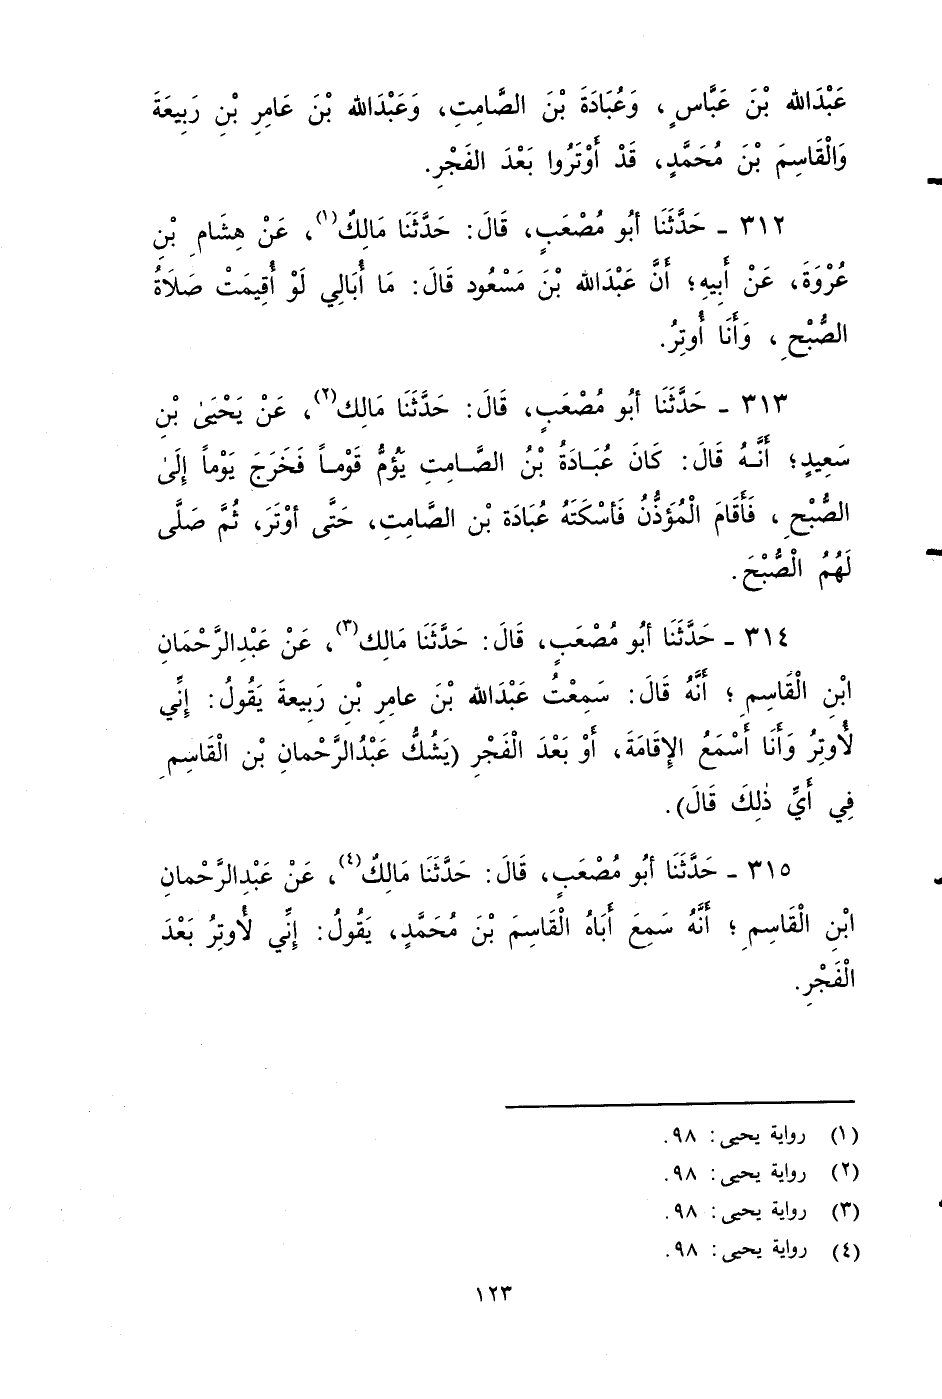 عَبْدَالله بْنَ عَبَّاسٍ ، وَعُبَادَةَ بْنَ الصَّامِتِ، وَعَبْدَالله بْنَ عَامِرِ بْنِ رَبِيعَةَ
وَالْقَاسِمَ بْنَ مُحَمَّدٍ، قَدْ أَوْتَرُوا بَعْدَ الفَجْرِ.
٣١٢ ـ حَدَّثَنَا أبُو مُصْعَبٍ، قَالَ: حَدَّثَنَا مَالِكٌ(١)، عَنْ هِشَامِ بْنِ
عُرْوَةَ، عَنْ أَبِيهِ؛ أَنَّ عَبْدَالله بْنَ مَسْعُود قَالَ: مَا أُبَالِي لَوْ أُقِيمَتْ صَلَاةُ
الصُّبْحِ ، وَأَنَا أُوتِرُ.
٣١٣ ـ حَدَّثَنَا أبُو مُصْعَبٍ، قَالَ: حَدَّثَنَا مَالِك(٢)، عَنْ يَحْيَىٰ بْنِ
سَعِيدٍ؛ أَنَّـهُ قَالَ: كَانَ عُبَـادَةُ بْنُ الصَّـامِتِ يَؤُمُّ قَوْمـاً فَخَرَجَ يَوْماً إِلَىٰ
الصُّبْحِ ، فَأَقَامَ الْمُؤَذِّنُ فَأسْكَتَهُ عُبَادَة بْن الصَّامِتِ، حَتَّى أوْتَرَ، ثُمَّ صَلَّى
لَهُمُ الْصُّبْحَ.
٣١٤ ـ حَدَّثَنَا أبُو مُصْعَبٍ، قَالَ: حَدَّثَنَا مَالِك(٣)، عَنْ عَبْدِالرَّحْمَانِ
ابْنِ الْقَاسِمِ ؛ أَنَّهُ قَالَ: سَمِعْتُ عَبْدَالله بْنَ عامِرِ بْنِ رَبِيعةَ يَقُولُ: إِنِّي
لُأوتِرُ وَأَنَا أَسْمَعُ الإِقَامَةَ، أَوْ بَعْدَ الْفَجْرِ (يَشُكُّ عَبْدُالرَّحْمانِ بْن الْقَاسِمِ
فِي أَيِّ ذٰلِكَ قَالَ).
٣١٥ ـ حَدَّثَنَا أبُو مُصْعَبٍ، قَالَ: حَدَّثَنَا مَالِكٌ(٤)، عَنْ عَبْدِالرَّحْمانِ
ابْنِ الْقَاسِمِ ؛ أَنَّهُ سَمِعَ أَبَاهُ الْقَاسِمَ بْنَ مُحَمَّدٍ، يَقُولُ: إِنِّي لَأوتِرُ بَعْدَ
الْفَجْرِ.
(١) رواية يحيى: ٩٨.
(٢) رواية يحيى: ٩٨.
(٣) رواية يحيى: ٩٨.
(٤) رواية يحيى: ٩٨.
١٢٣